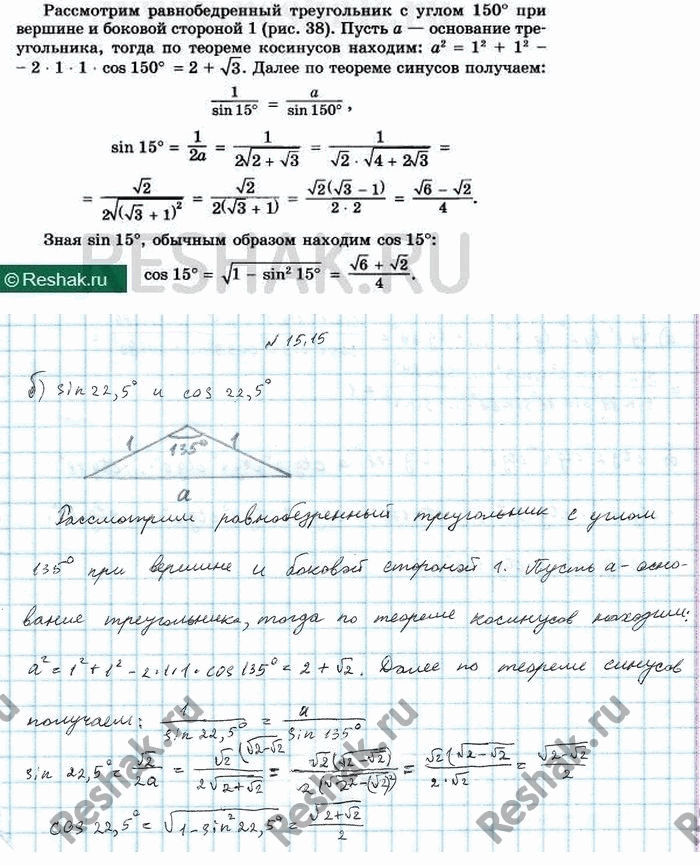 Рассмотрим равнобедренный треугольник с углом 150° при
вершине и боковой стороной 1 (рис. 38). Пусть a — основание тре-
угольника, тогда по теореме косинусов находим: a² = 1² + 1² −
− 2 · 1 · 1 · cos 150° = 2 + √3. Далее по теореме синусов получаем:
1/sin 15° = a/sin 150°,
sin 15° = 1/2a = 1/(2√(2 + √3)) = 1/(√2 · √(4 + 2√3)) =
= √2/(2√((√3 + 1)²)) = √2/(2(√3 + 1)) = √2(√3 − 1)/(2 · 2) = (√6 − √2)/4.
Зная sin 15°, обычным образом находим cos 15°:
© Reshak.ru
cos 15° = √(1 − sin² 15°) = (√6 + √2)/4.
RESHAK.RU
№ 15.15
б) sin 22,5° и cos 22,5°
1 135° 1
a
Рассмотрим равнобезренный треугольник с углом
135° при вершине и боковой стороной 1. Пусть a - осно-
вание треугольника, тогда по теореме косинусов находим:
a² = 1² + 1² - 2·1·1·cos 135° = 2 + √2. Далее по теореме синусов
получаем: 1/sin 22,5° = a/sin 135°
sin 22,5° = √2/2a = √2(√(2-√2)/(2√(2+√2)) = √2(√(2-√2))/(2(√(2²-(√2)²)) = √2(√(2-√2)/(2·√2) = √(2-√2)/2
cos 22,5° = √(1-sin² 22,5°) = √(2+√2)/2
Reshak.ru
Reshak.ru
Reshak.ru